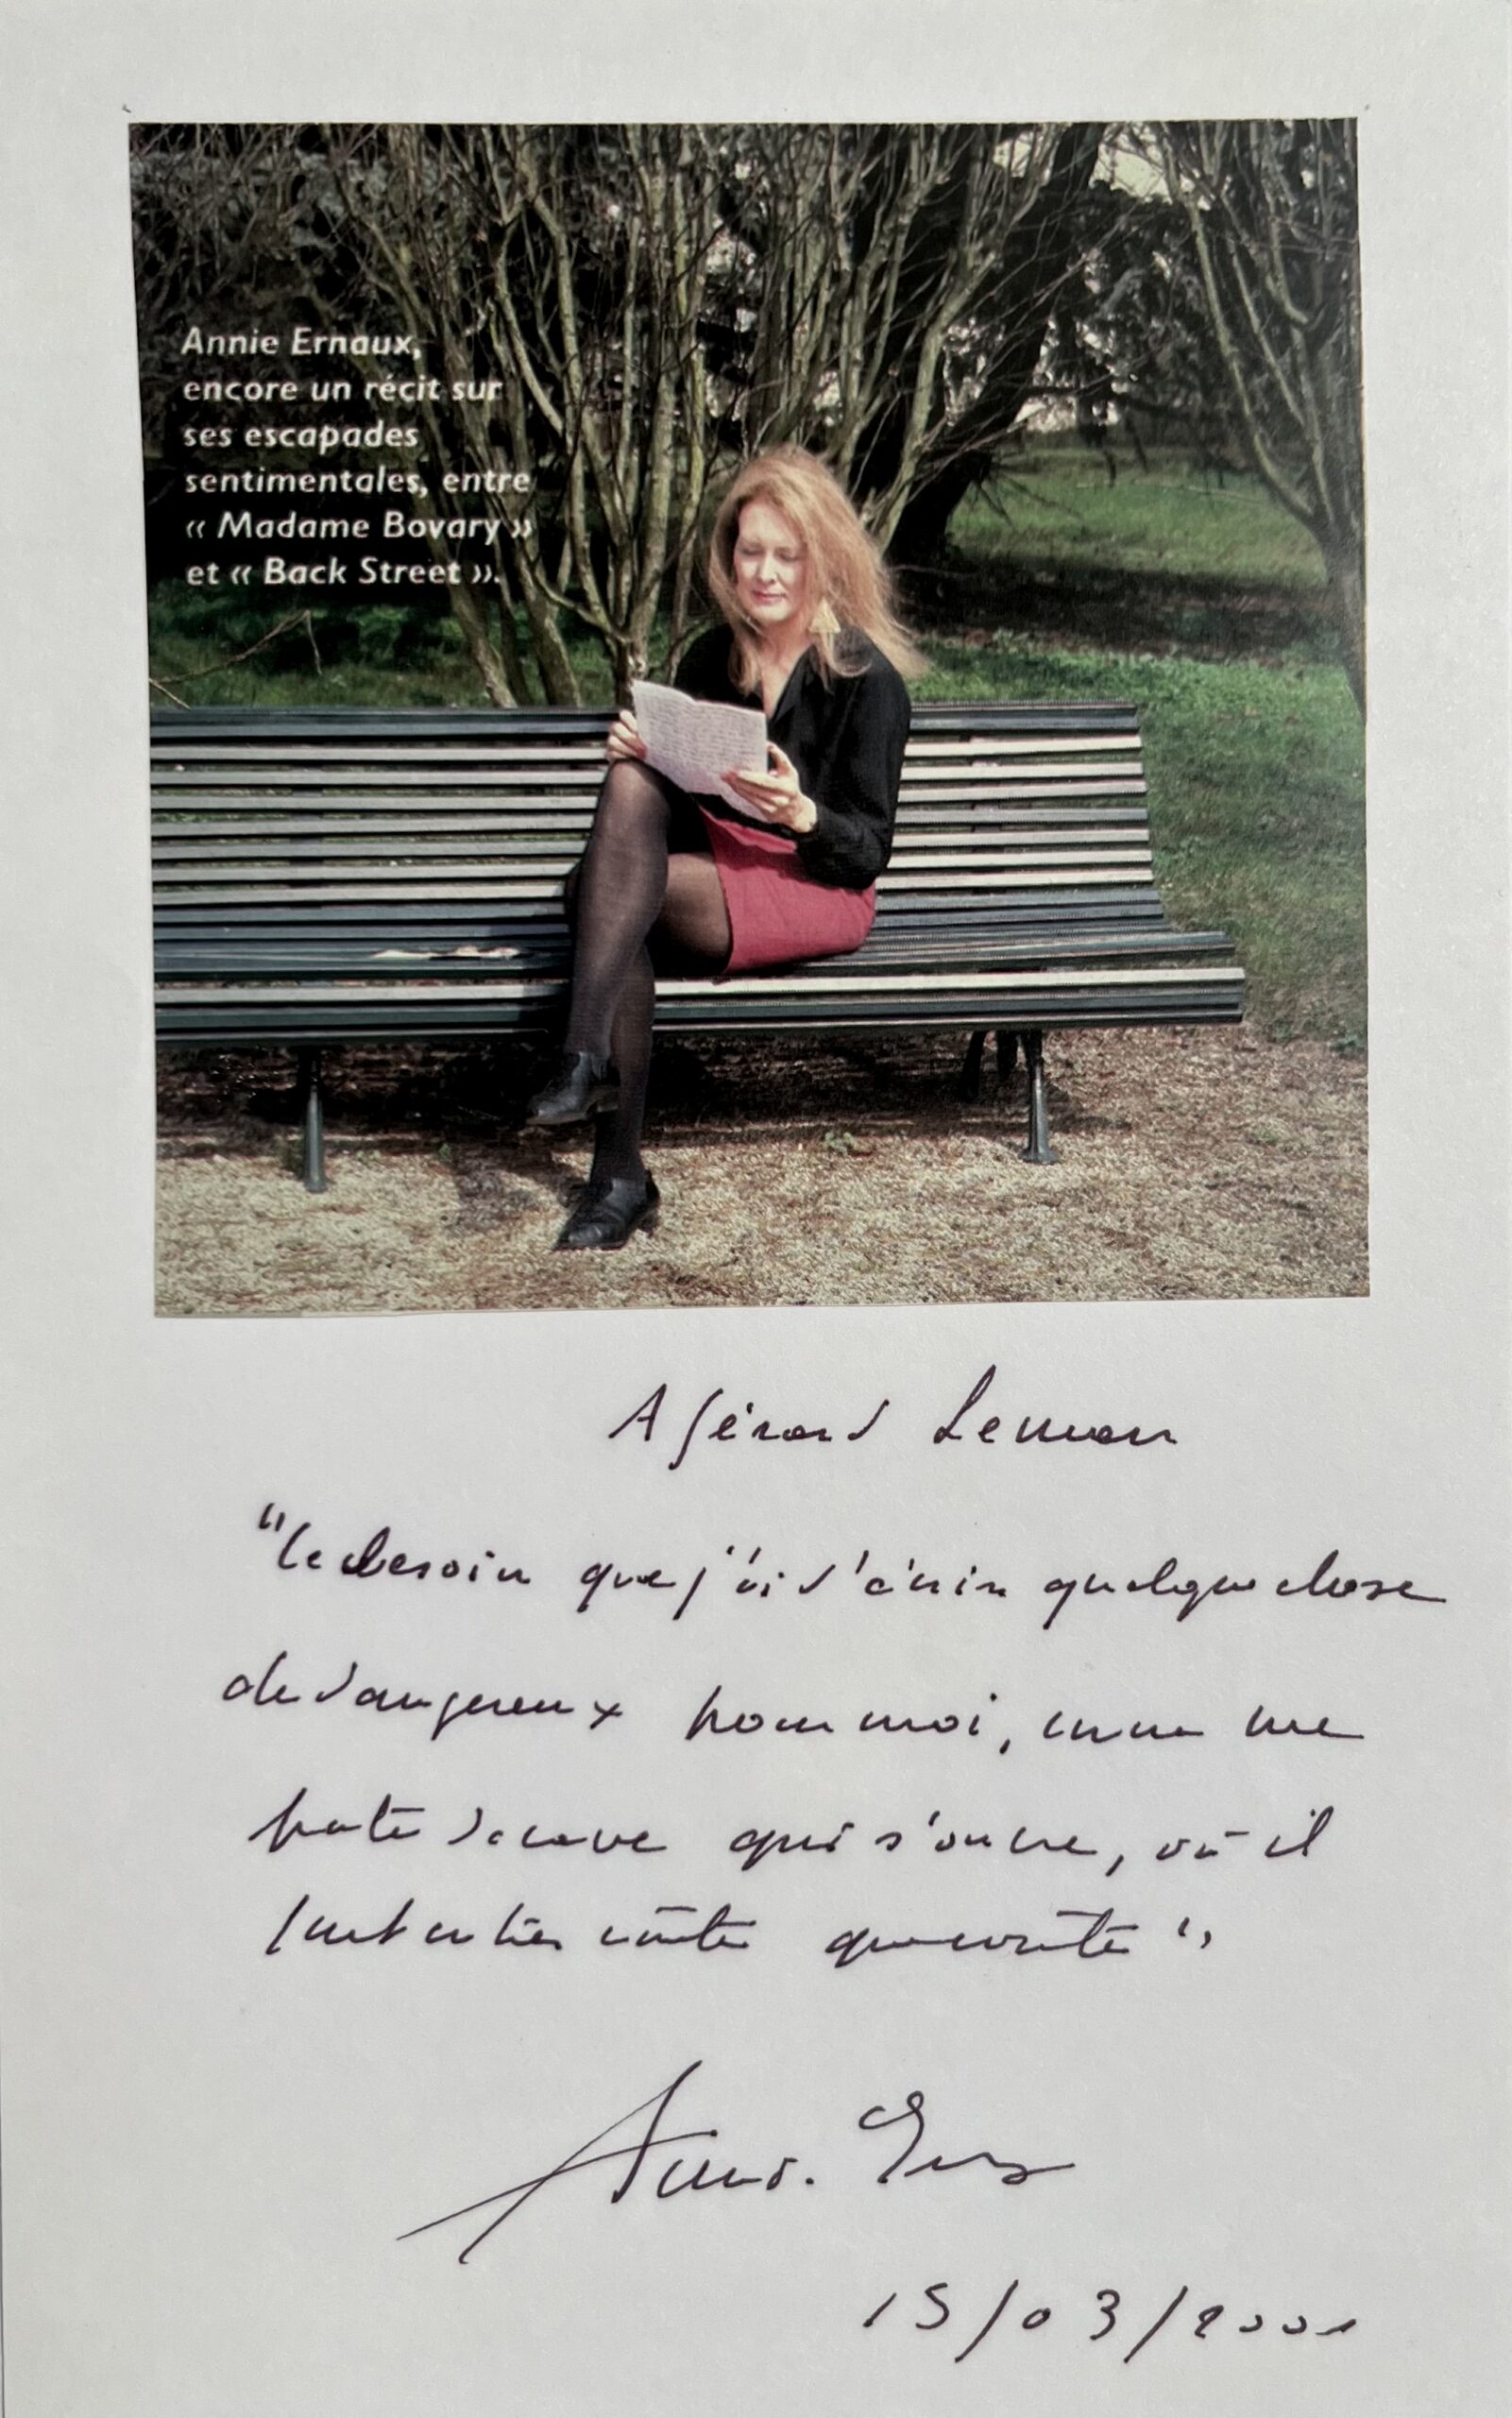 Annie Ernaux,
encore un récit sur
ses escapades
sentimentales, entre
« Madame Bovary »
et « Back Street ».
A Gérard Leman
"le besoin que j'ai d'écrire quelque chose
de dangereux pour moi, comme une
porte de cave qui s'ouvre, où il
faut entrer coûte que coûte"
Annie Ernaux
15/03/2001